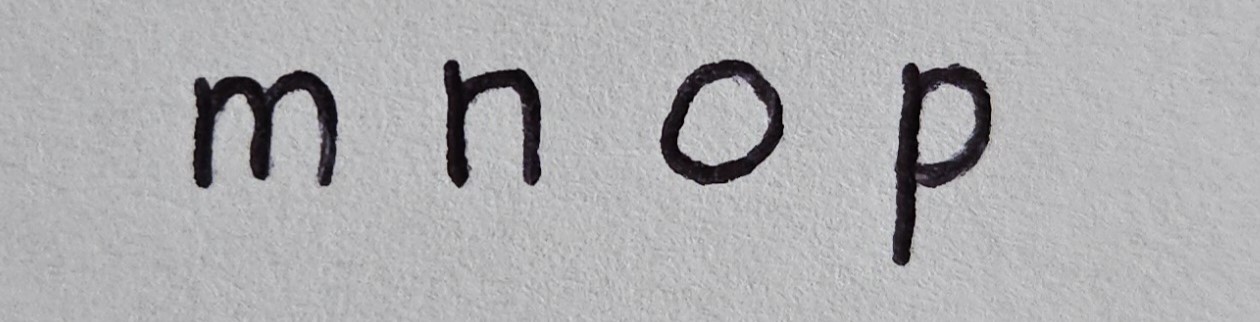 m n o p